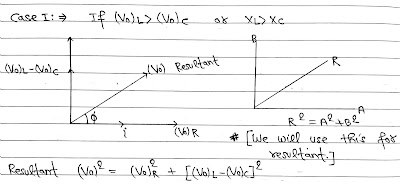 Case I:⇒ If (V₀)L > (V₀)c or XL > Xc
(V₀)L-(V₀)c
(V₀) Resultant
ϕ
i
(V₀)R
B
R
A
R² = A² + B²
* [We will use this for
resultant.]
Resultant (V₀)² = (V₀)²R + [(V₀)L-(V₀)c]²